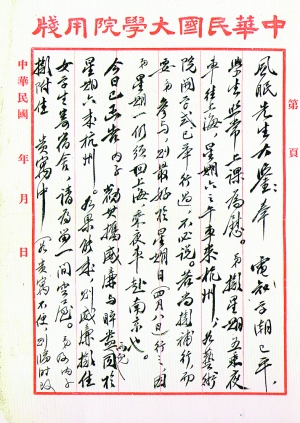 中華民國大學院用牋
第 頁
風眠先生大鑒:奉 電知學潮已平,
學生照常上課爲慰。弟擬星期五乘夜
車往上海,星期六之午車來杭州。如藝術
院開學式已舉行過,不必說。若尚擬補行,而
要弟參與,則最好於星期日(四月八日)行之。因
弟星期一仍須回上海乘夜車赴南京也。
今日已函告內子,勸其攜威廉與睟盎兩兒同於
星期六來杭州。如果能來,則威廉擬住
女學生寄宿舍,請爲留一間空屋。弟偕內子
擬附住 貴寓中(如貴寓不便,則臨時改
中華民國 年 月 日